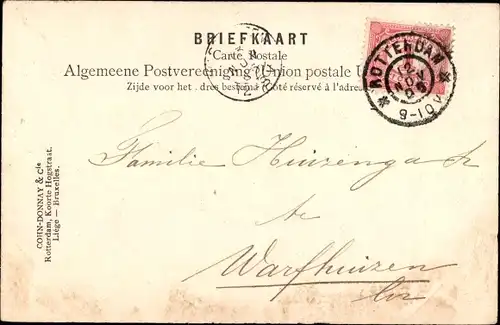 BRIEFKAART
Carte Postale
Algemeene Postvereeniging (Union postale U
Zijde voor het .dres bestemd (Côté réservé à l'adres
ROTTERDAM
12
NOV
9-10V
Familie Huizenga
te
Warfhuizen
COHN-DONNAY & Cie
Rotterdam, Koorte Hogstraat.
Liège — Bruxelles.